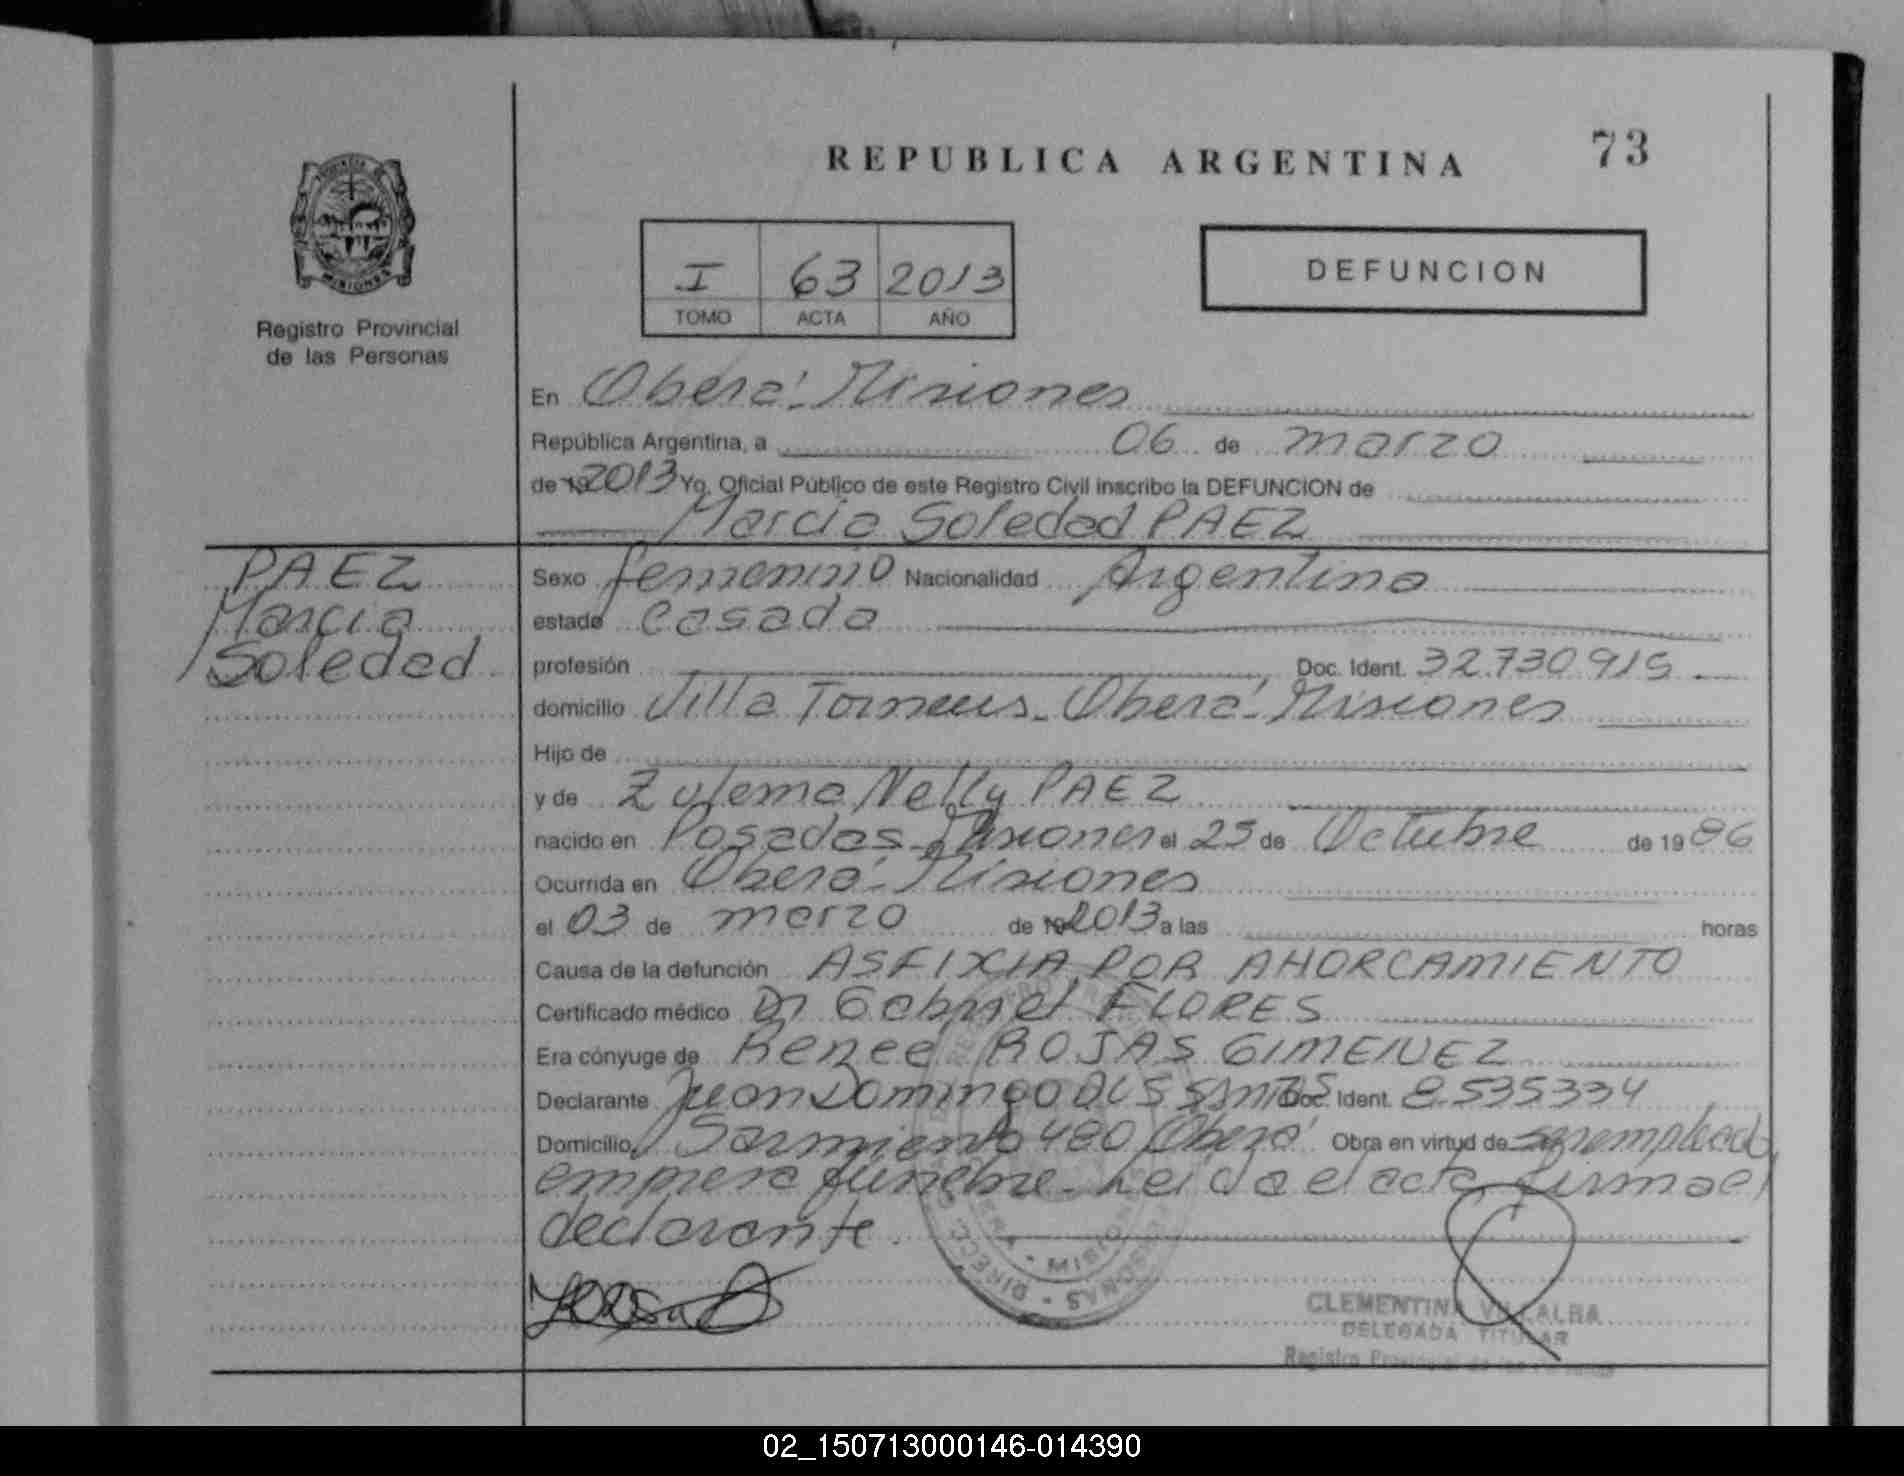 REPUBLICA ARGENTINA
73
PROVINCIA DE MISIONES
Registro Provincial
de las Personas
I 63 2013
TOMO ACTA AÑO
DEFUNCION
En Oberá - Misiones
República Argentina, a 06 de marzo
de 19 2013 Yo, Oficial Público de este Registro Civil inscribo la DEFUNCION de
Marcia Soledad PAEZ
PAEZ
Marcia
Soledad
Sexo femenino Nacionalidad Argentina
estado casada
profesión Doc. Ident. 32.730.915
domicilio Villa Oberá - Misiones
Hijo de
y de Zulema Nelly PAEZ
nacido en Posadas - Misiones el 25 de Octubre de 19 86
Ocurrida en Oberá - Misiones
el 03 de marzo de 19 2013 a las horas
Causa de la defunción ASFIXIA POR AHORCAMIENTO
Certificado médico Dr Gabriel FLORES
Era cónyuge de Renee ROJAS GIMENEZ
Declarante Juan Domingo DOS SANTOS Doc. Ident. 8.535334
Domicilio Sarmiento 480 Oberá Obra en virtud de ser empleado
empresa fúnebre - Leida el acta, firma el
declarante.
MISIONES
CLEMENTINA VILLALBA
DELEGADA TITULAR
Registro Provincial de las Personas
02_150713000146-014390